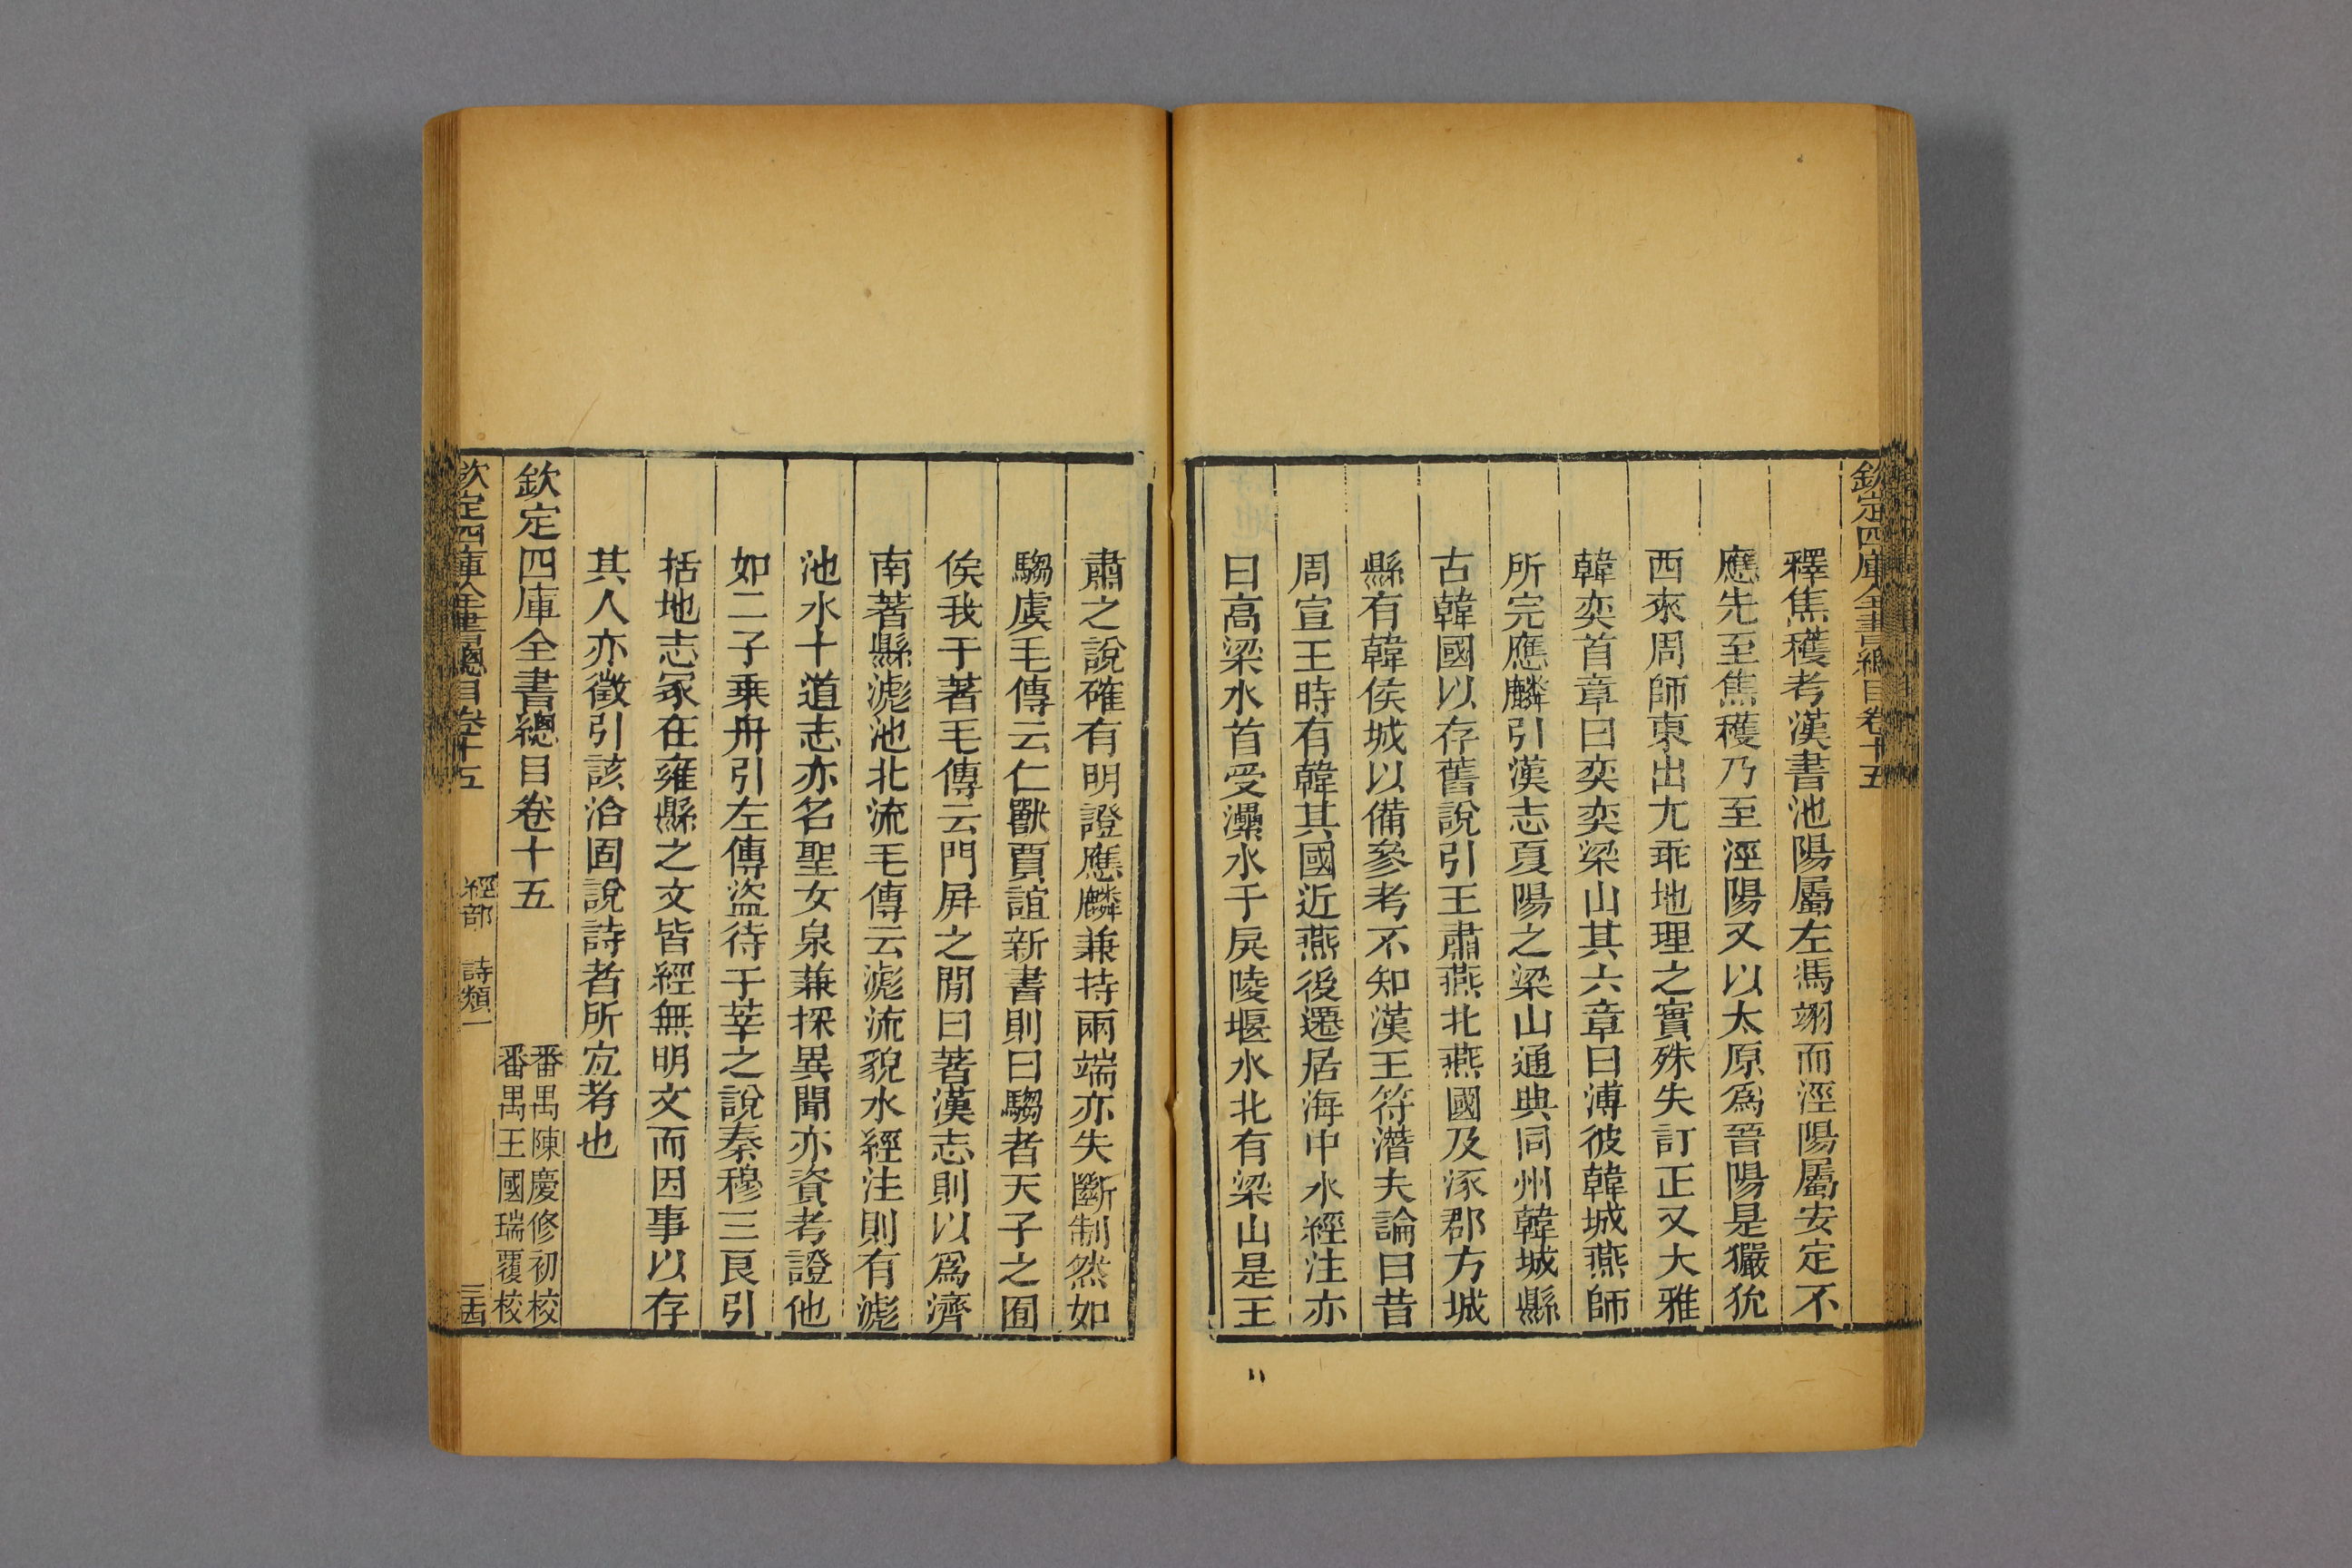 欽定四庫全書總目卷十五
釋焦穫考漢書池陽屬左馮翊而涇陽屬安定不
應先至焦穫乃至涇陽又以太原爲晉陽是玁狁
西來周師東出尤乖地理之實殊失訂正又大雅
韓奕首章曰奕奕梁山其六章曰溥彼韓城燕師
所完應麟引漢志夏陽之梁山通典同州韓城縣
古韓國以存舊說引王肅燕北燕國及涿郡方城
縣有韓侯城以備參考不知漢王符潛夫論曰昔
周宣王時有韓其國近燕後遷居海中水經注亦
曰高梁水首受㶟水于戾陵堰水北有梁山是王
肅之說確有明證應麟兼持兩端亦失斷制然如
騶虞毛傳云仁獸賈誼新書則曰騶者天子之囿
俟我于著毛傳云門屏之閒曰著漢志則以爲濟
南著縣滮池北流毛傳云滮流貌水經注則有滮
池水十道志亦名聖女泉兼採異聞亦資考證他
如二子乘舟引左傳盜待于莘之說秦穆三良引
括地志冢在雍縣之文皆經無明文而因事以存
其人亦徵引該洽固說詩者所宜考也
欽定四庫全書總目卷十五
番禺陳慶修初校
番禺王國瑞覆校
欽定四庫全書總目卷十五 經部 詩類一